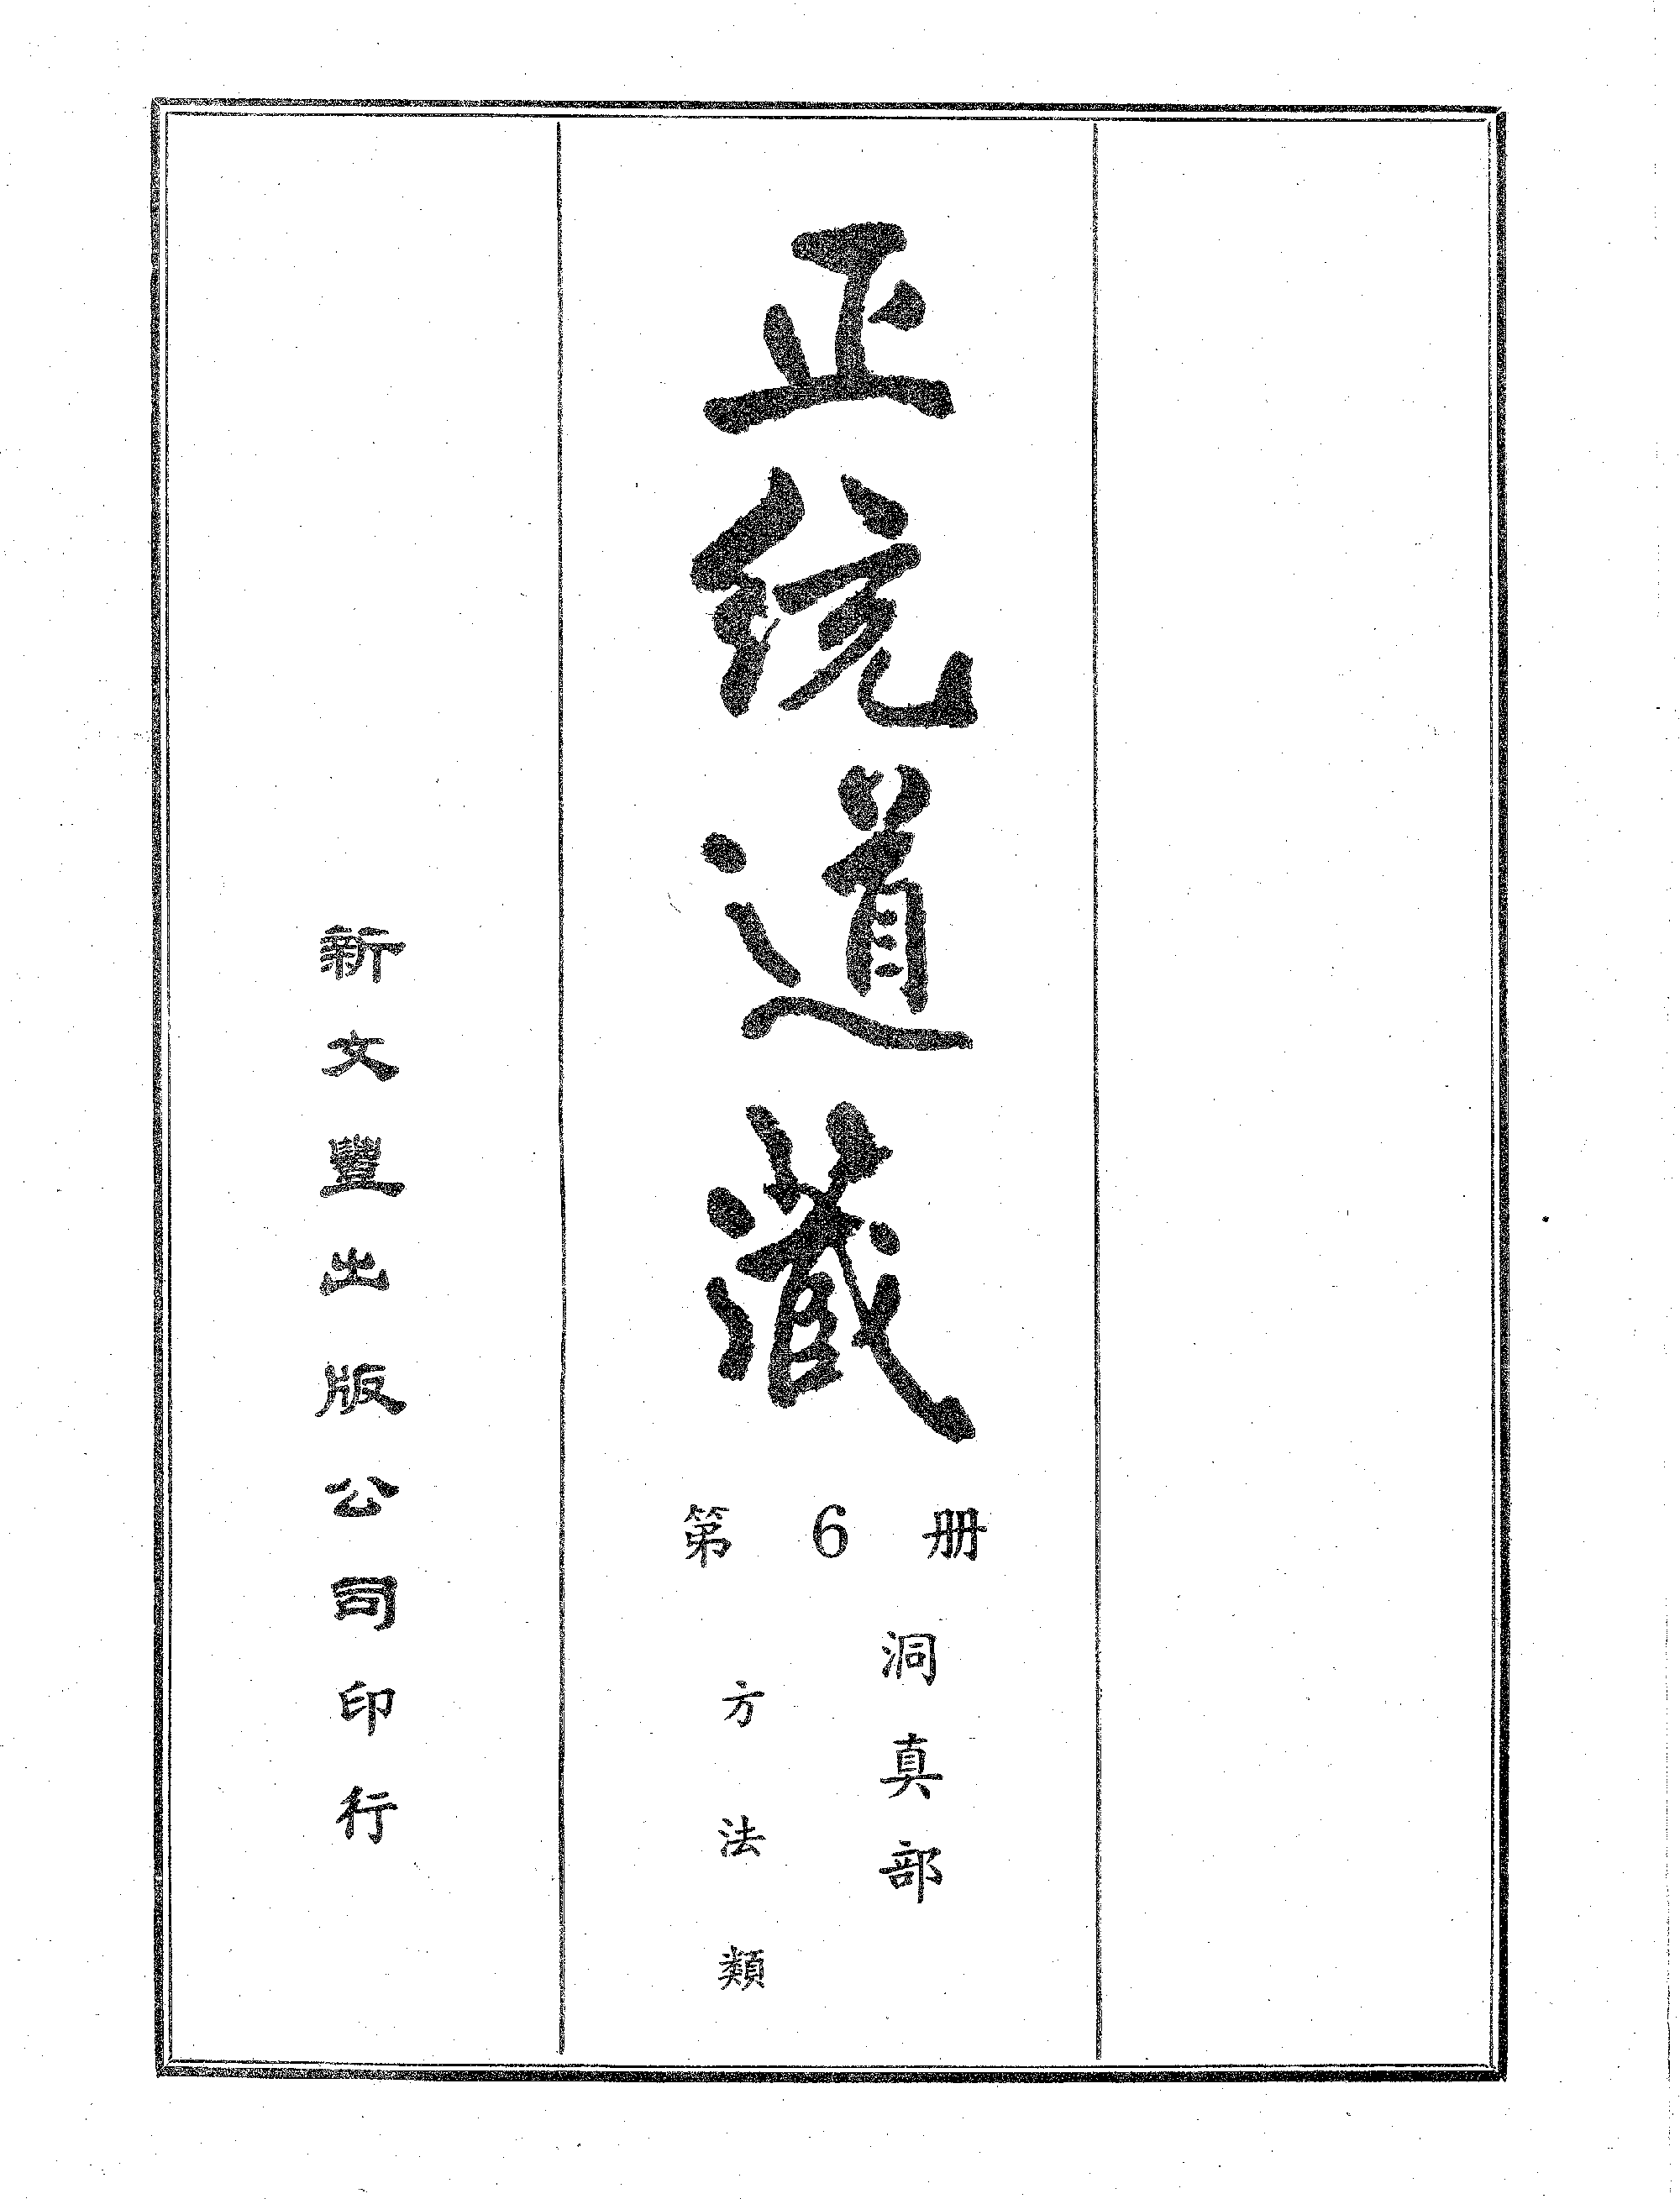 正統道藏
第6册
洞真部
方法類
新文豐出版公司印行